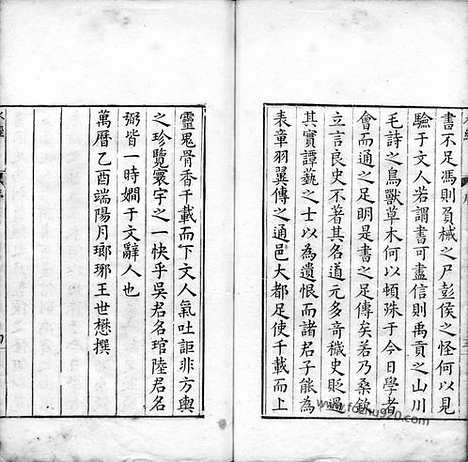 書不足馮則貳械之尸彭侯之怪何以見
驗于文人若謂書可盡信則禹貢之山川
毛詩之鳥獸草木何以頓殊于今日學者
會而通之足明是書之足傳矣若乃桑欽
立言良史不著其名道元多奇穢史貶過
其實譚蓺之士以為遺恨而諸君子能為
表章羽翼傳之通邑大都足使千載而上
靈鬼骨香千載而下文人氣吐詎非方輿
之珍覽寰宇之一快乎吳君名琯陸君名
弼皆一時嫺于文辭人也
萬曆乙酉端陽月瑯琊王世懋撰
www.fozhu920.com